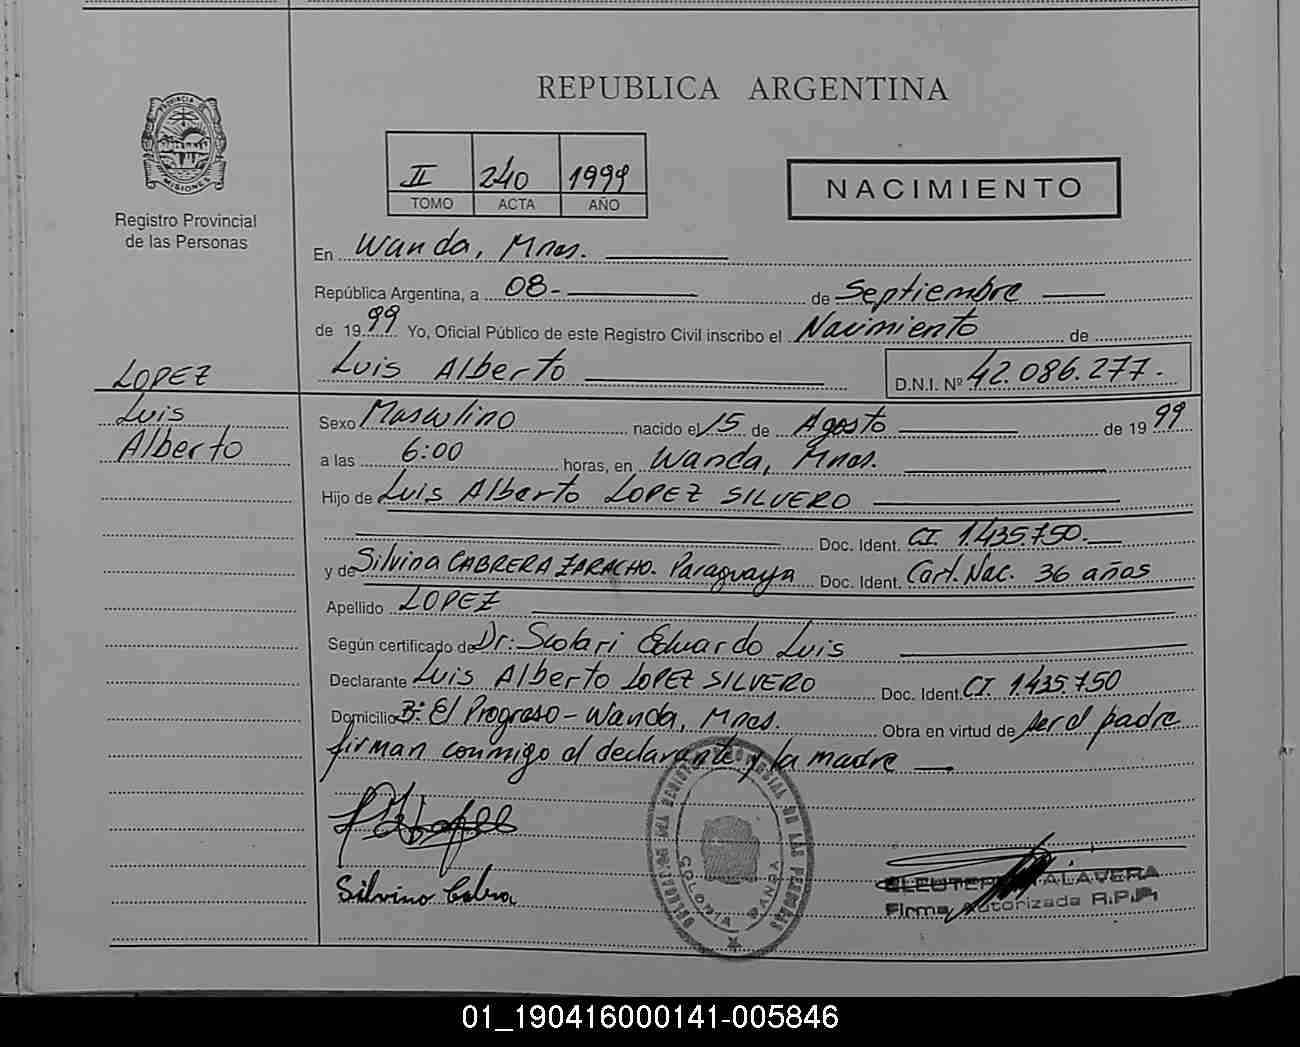 REPUBLICA ARGENTINA
PROVINCIA DE
MISIONES
Registro Provincial
de las Personas
II 240 1999
TOMO ACTA AÑO
NACIMIENTO
En Wanda, Mnes.
República Argentina, a 08- de Septiembre
de 1999 Yo, Oficial Público de este Registro Civil inscribo el Nacimiento de
Luis Alberto D.N.I. Nº 42.086.277.
LOPEZ
Luis
Alberto
Sexo Masculino nacido el 15 de Agosto de 1999
a las 6:00 horas, en Wanda, Mnes.
Hijo de Luis Alberto LOPEZ SILVERO
Doc. Ident. CI 1.435.750.
y de Silvina CABRERA ZARACHO. Paraguaya Doc. Ident. Cert. Nac. 36 años
Apellido LOPEZ
Según certificado de Dr: Scolari Eduardo Luis
Declarante Luis Alberto LOPEZ SILVERO Doc. Ident. CI 1.435.750
Domicilio Bº El Progreso - Wanda, Mnes. Obra en virtud de ser el padre
firman conmigo el declarante y la madre
COLONIA WANDA
Silvino
ALAVERA
Firma Autorizada R.P.P.
01_190416000141-005846